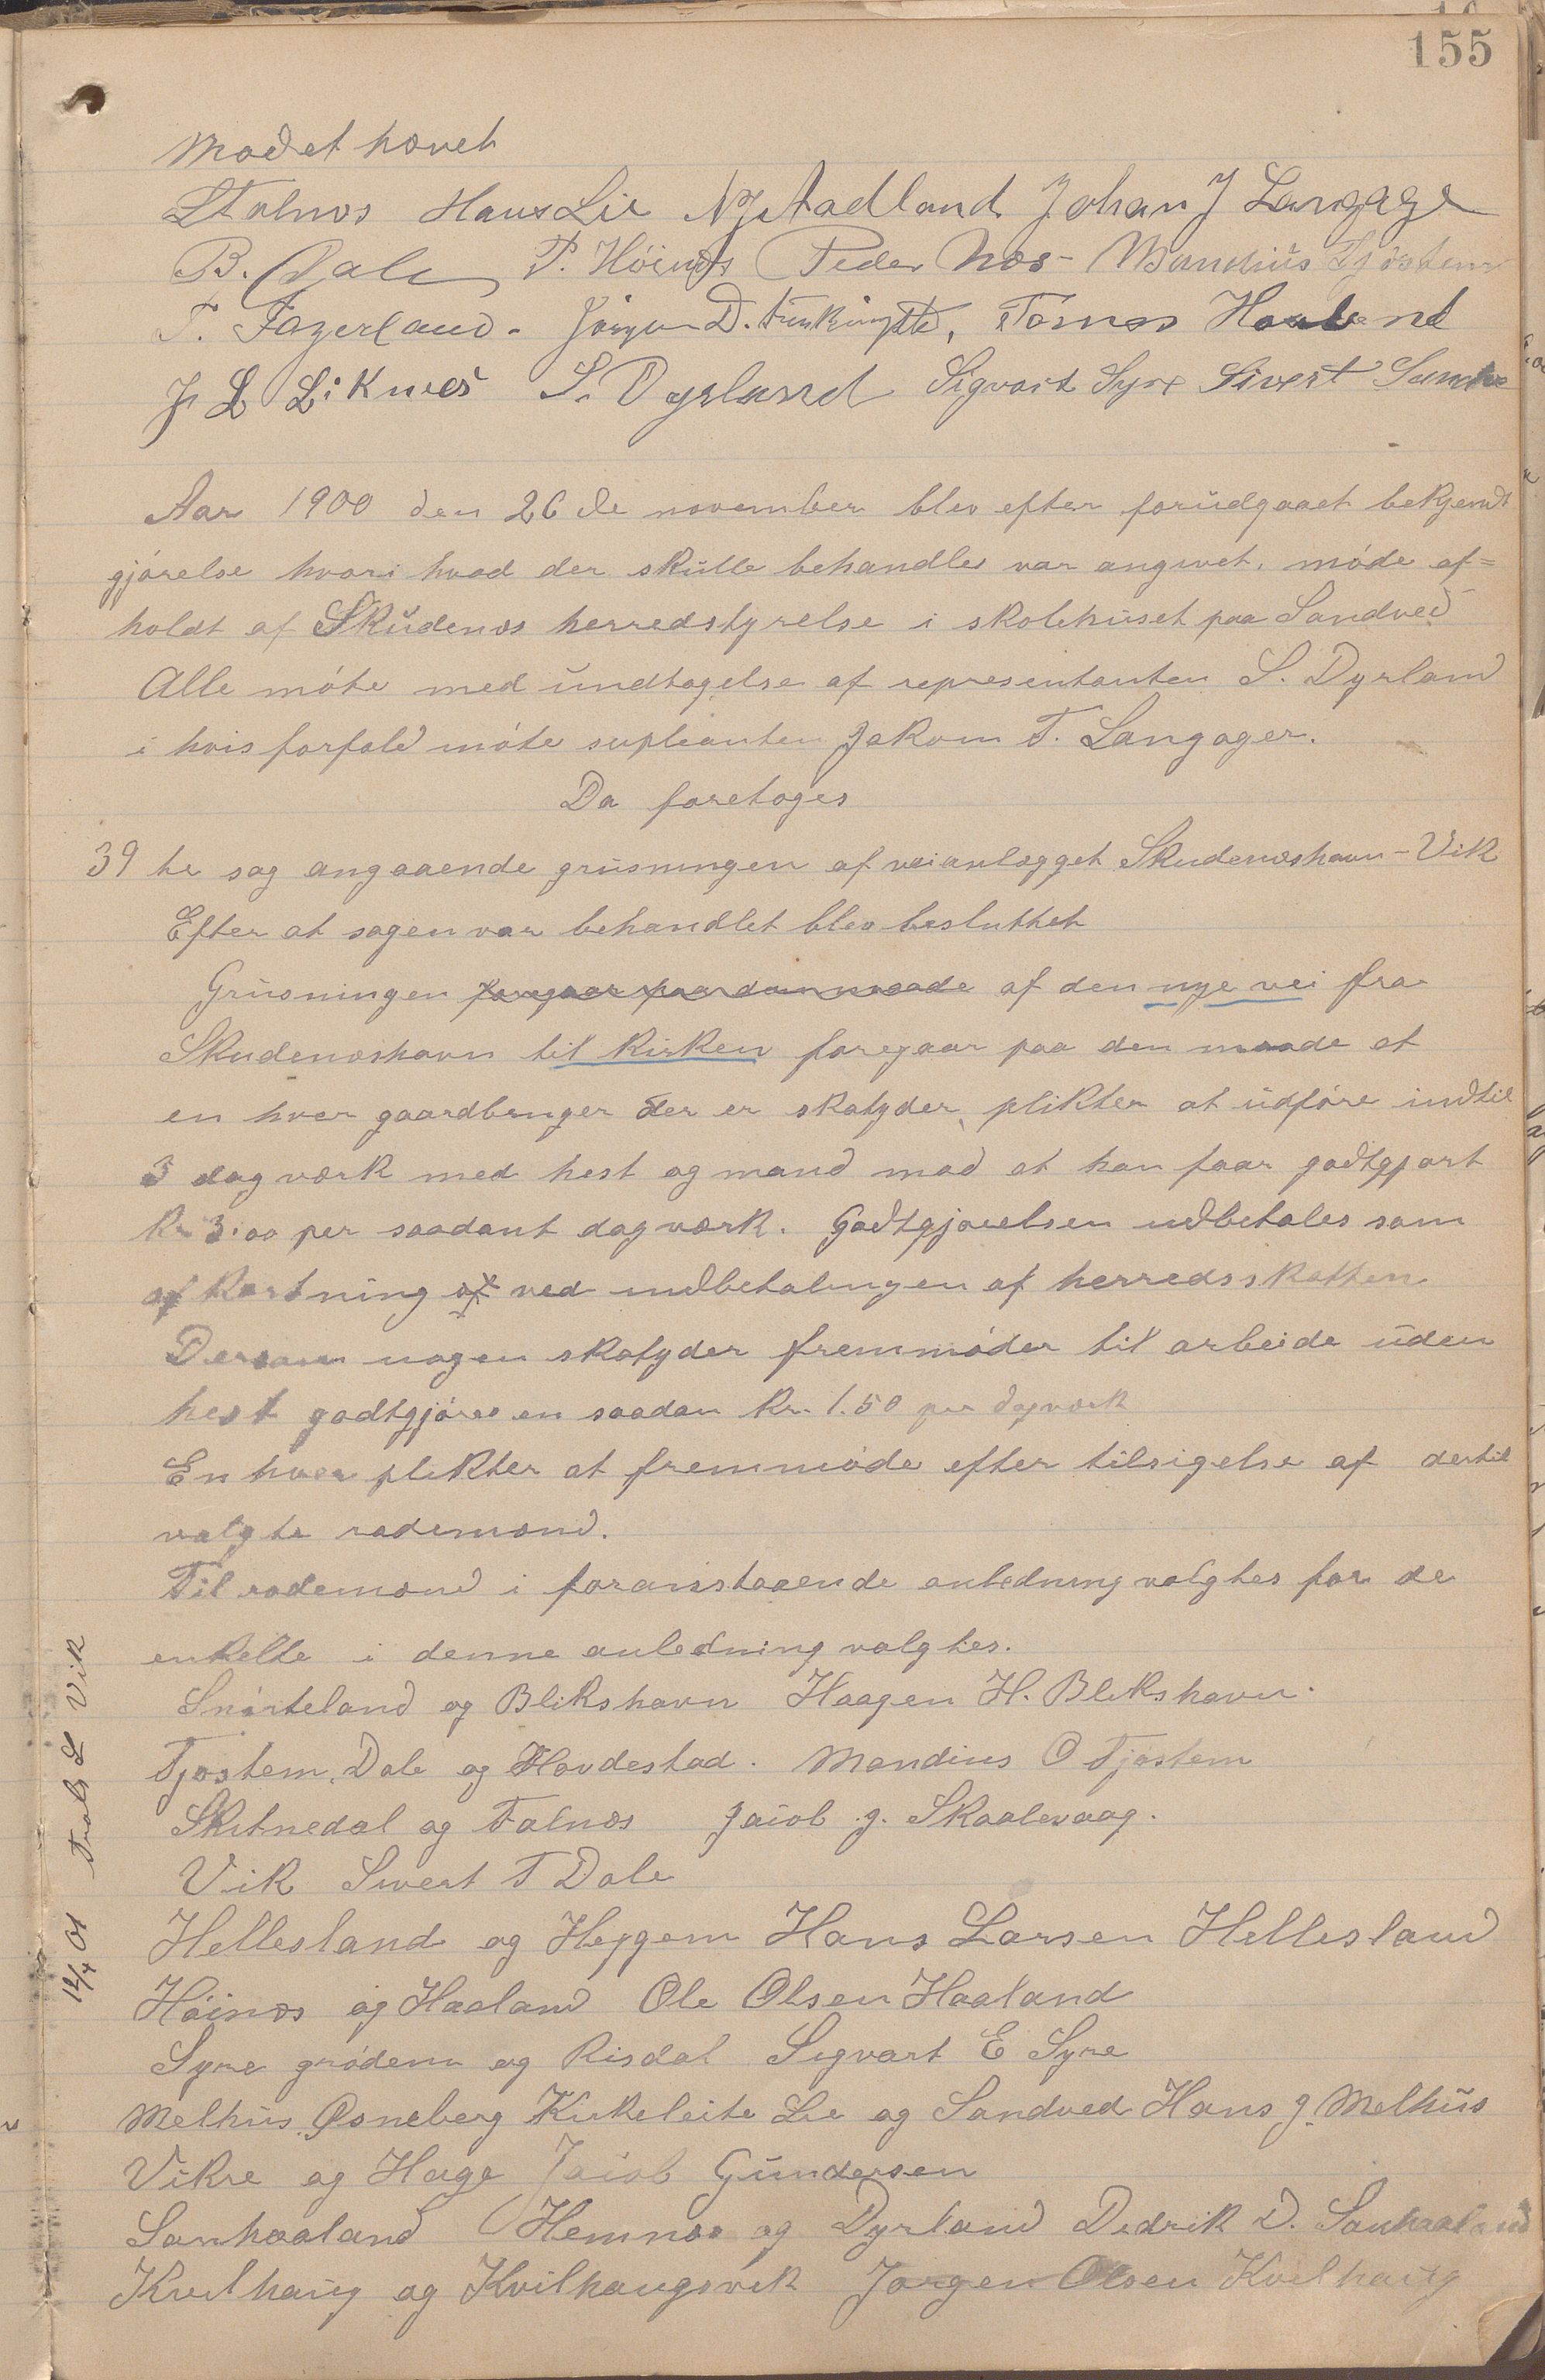 155
Mødet hævet
L Falnæs Hans Lie N J Stadland Johan J Langage
B. Dale T. Høinæs Peder Næs - Mandius Tjøstem
T. Fagerland. Jørgen D. , Tørnes Haaland
J. L Liknes S. Dyrland Sigvart Syre Sivert Sandve
Aar 1900 den 26de november blev efter forudgaaet bekjendt
gjørelse hvori hvad der skulle behandles var angivet, møde af=
holdt af Skudenæs herredstyrelse i skolehuset paa Sandved
Alle møte med undtagelse af representanten S. Dyrland
i hvis forfald møte supleanten Jakom T. Langager.
Da foretoges
39 te sag angaaende grusningen af veianlægget Skudenæshavn - Vik
Efter at sagen var behandlet blev besluttet
Grusningen foregaar paa dan maade af den nye vei fra
Skudenæshavn til kirken foregaar paa den maade at
en hver gaardbruger der er skatyder, plikter at udføre indtil
3 dagværk med hest og mand mod at han faar godtgjort
Kr 3.00 per saadant dagværk. Godtgjørelsen udbetales som
afkortning af ved indbetalingen af herredsskatten
Dersom nogen skatyder fremmøder til arbeide uden
hest godtgjøres en saadan Kr. 1.50 per dagværk
En hver plikter at fremmøde efter tilsigelse af dertil
valgte rodemænd.
Til rodemænd i foranstaaende anledning valgtes for de
enkelte i denne anledning valgtes.
Snørteland og Blikshavn Haagen H. Blikshavn.
Tjøstem, Dale og Hovdestad. Mandius O Tjøstem
Skitnedal og Falnæs Jacob J. Skaalevaag.
Vik Sivert T Dale
Hellesland og Heggem Hans Larsen Hellesland
Høinæs og Haaland Ole Olsen Haaland
Syre grødem og Risdal Sigvart E Syre
Melhus, Østneberg Kirkeleite Lie og Sandved Hans J. Melhus
Vikre og Hage Jacob Gundersen
Sørhaaland Hemnæs og Dyrland Dedrik D. Sørhaaland
Kvilhaug og Kvilhaugsvik Jørgen Olsen Kvilhaug
12/4 01 Trols L Vik